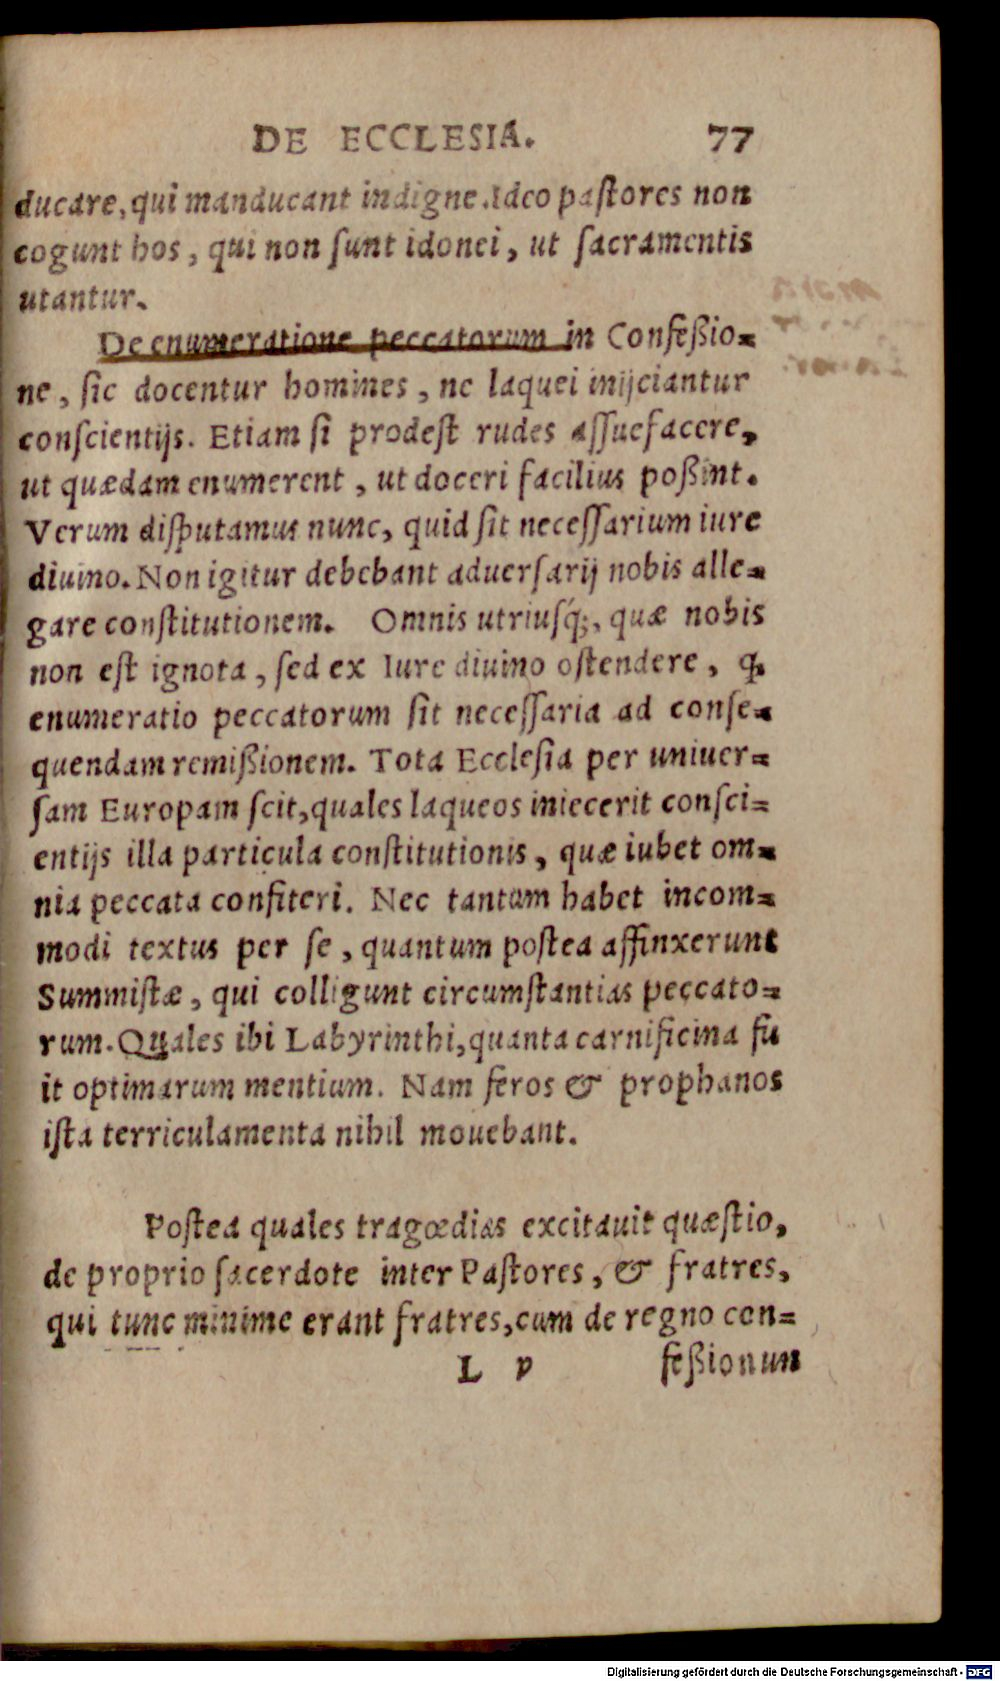 DE ECCLESIA. 77
ducare, qui manducant indigne. Ideo paſtores non
cogunt hos, qui non ſunt idonei, ut ſacramentis
utantur.
De enumeratione peccatorum in Confeßio=
ne, ſic docentur homines, ne laquei inijciantur
conſcientijs. Etiam ſi prodeſt rudes aſſuefacere,
ut quædam enumerent, ut doceri facilius poßint.
Verum diſputamus nunc, quid ſit neceſſarium iure
diuino. Non igitur debebant aduerſarij nobis alle=
gare conſtitutionem. Omnis utriuſq́;, quæ nobis
non eſt ignota, ſed ex Iure diuino oſtendere, ꝙ
enumeratio peccatorum ſit neceſſaria ad conſe=
quendam remißionem. Tota Eccleſia per uniuer=
ſam Europam ſcit, quales laqueos iniecerit conſci=
entijs illa particula conſtitutionis, quæ iubet om=
nia peccata confiteri. Nec tantum habet incom=
modi textus per ſe, quantum poſtea affinxerunt
Summiſtæ, qui colligunt circumſtantias peccato=
rum. Quales ibi Labyrinthi, quanta carnificina fu
it optimarum mentium. Nam feros & prophanos
iſta terriculamenta nihil mouebant.
Poſtea quales tragœdias excitauit quæſtio,
de proprio ſacerdote inter Paſtores, & fratres,
qui tunc minime erant fratres, cum de regno con=
L v feßionum
Digitalisierung gefördert durch die Deutsche Forschungsgemeinschaft - DFG